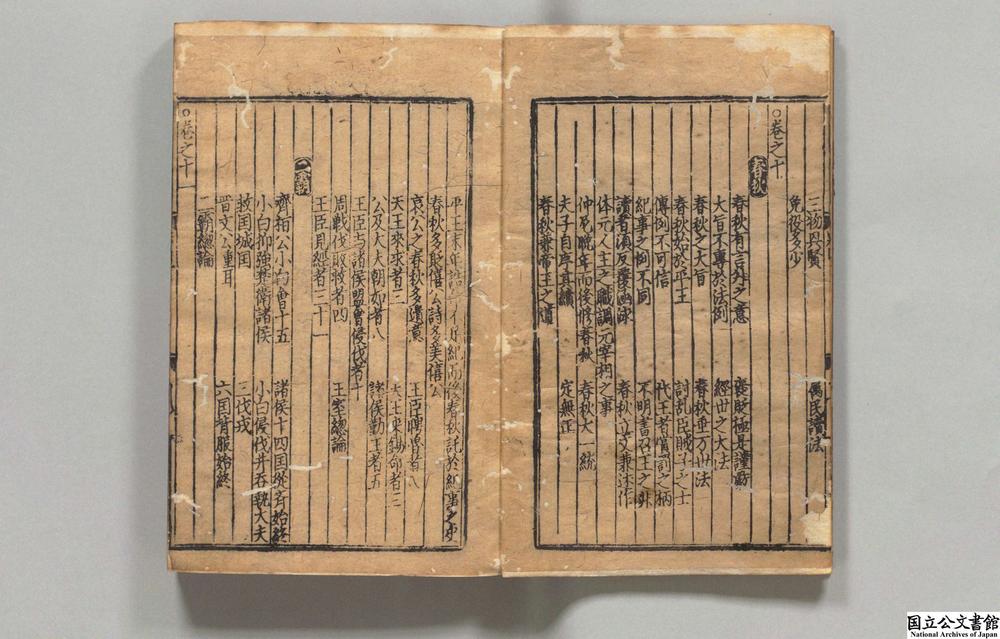 三物興賢 属民讀法
免役多少
○卷之十
春秋
春秋有言外之意 褒貶極是謹嚴
大旨不專於法例 經世之大法
春秋之大旨 春秋垂万世法
春秋始於平王 討乱臣賊子之士
傳例不可信 代王者賞罰之柄
紀事之例不同 不明書召王之非
讀者須反覆涵泳 春秋立守兼述作
体元人主之職調元宰相之事
仲尼晚年而後修春秋 春秋大一統
夫子自序其績 定無正
春秋兼帝王之道
平王末年 春秋託於紀事之中
春秋多貶僖公詩多美僖公
哀公之春秋多遺意 王臣聘魯者八
天王來求者三 天王來錫命者三
公及大夫朝如者八 諸侯勤王者五
王臣与諸侯盟會侵伐者十
周戰伐敗救者四 王室總論
王臣見經者三十一
○卷之十一
二霸
齊桓公小白會十五 諸侯十四国從齊始終
小白抑強楚衛諸侯 小白侵伐并吞執大夫
救国城国 三伐戎
晋文公重耳 六国背服始終
二霸總論
国立公文書館
National Archives of Japan